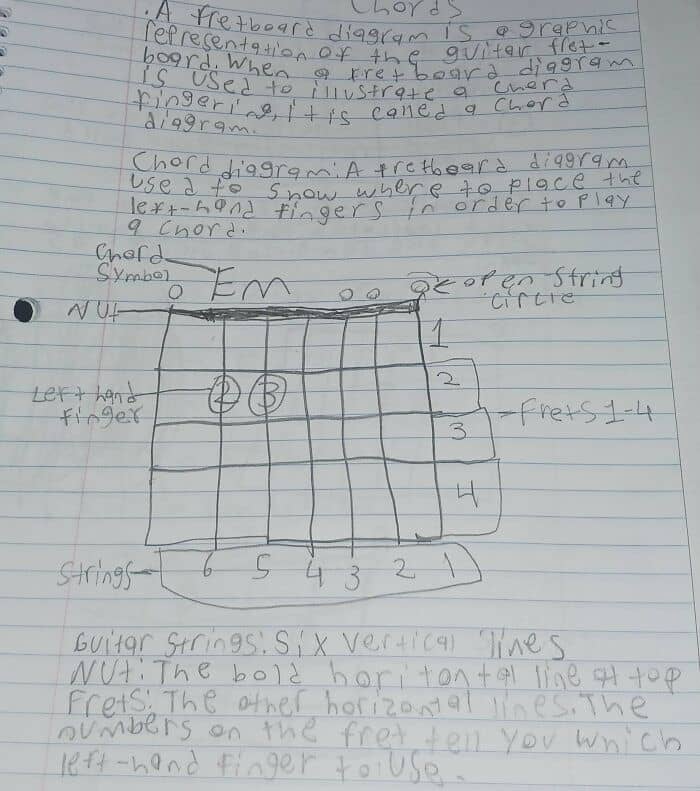 Chords
. A fretboard diagram is a graphic
representation of the guitar fret-
board. When a fret board diagram
is used to illustrate a chord
fingering, it is called a chord
diagram.
Chord diagram: A fretboard diagram
used to show where to place the
left-hand fingers in order to play
a chord.
Chord
Symbol
O Em O O O open string
circle
NUt
1
Left hand
finger
2 3
2
3
Frets 1-4
4
Strings
6 5 4 3 2 1
Guitar Strings: Six vertical lines
NUt: The bold horitontal line at top
Frets: The other horizontal lines. The
numbers on the fret tell you which
left-hand finger to use.